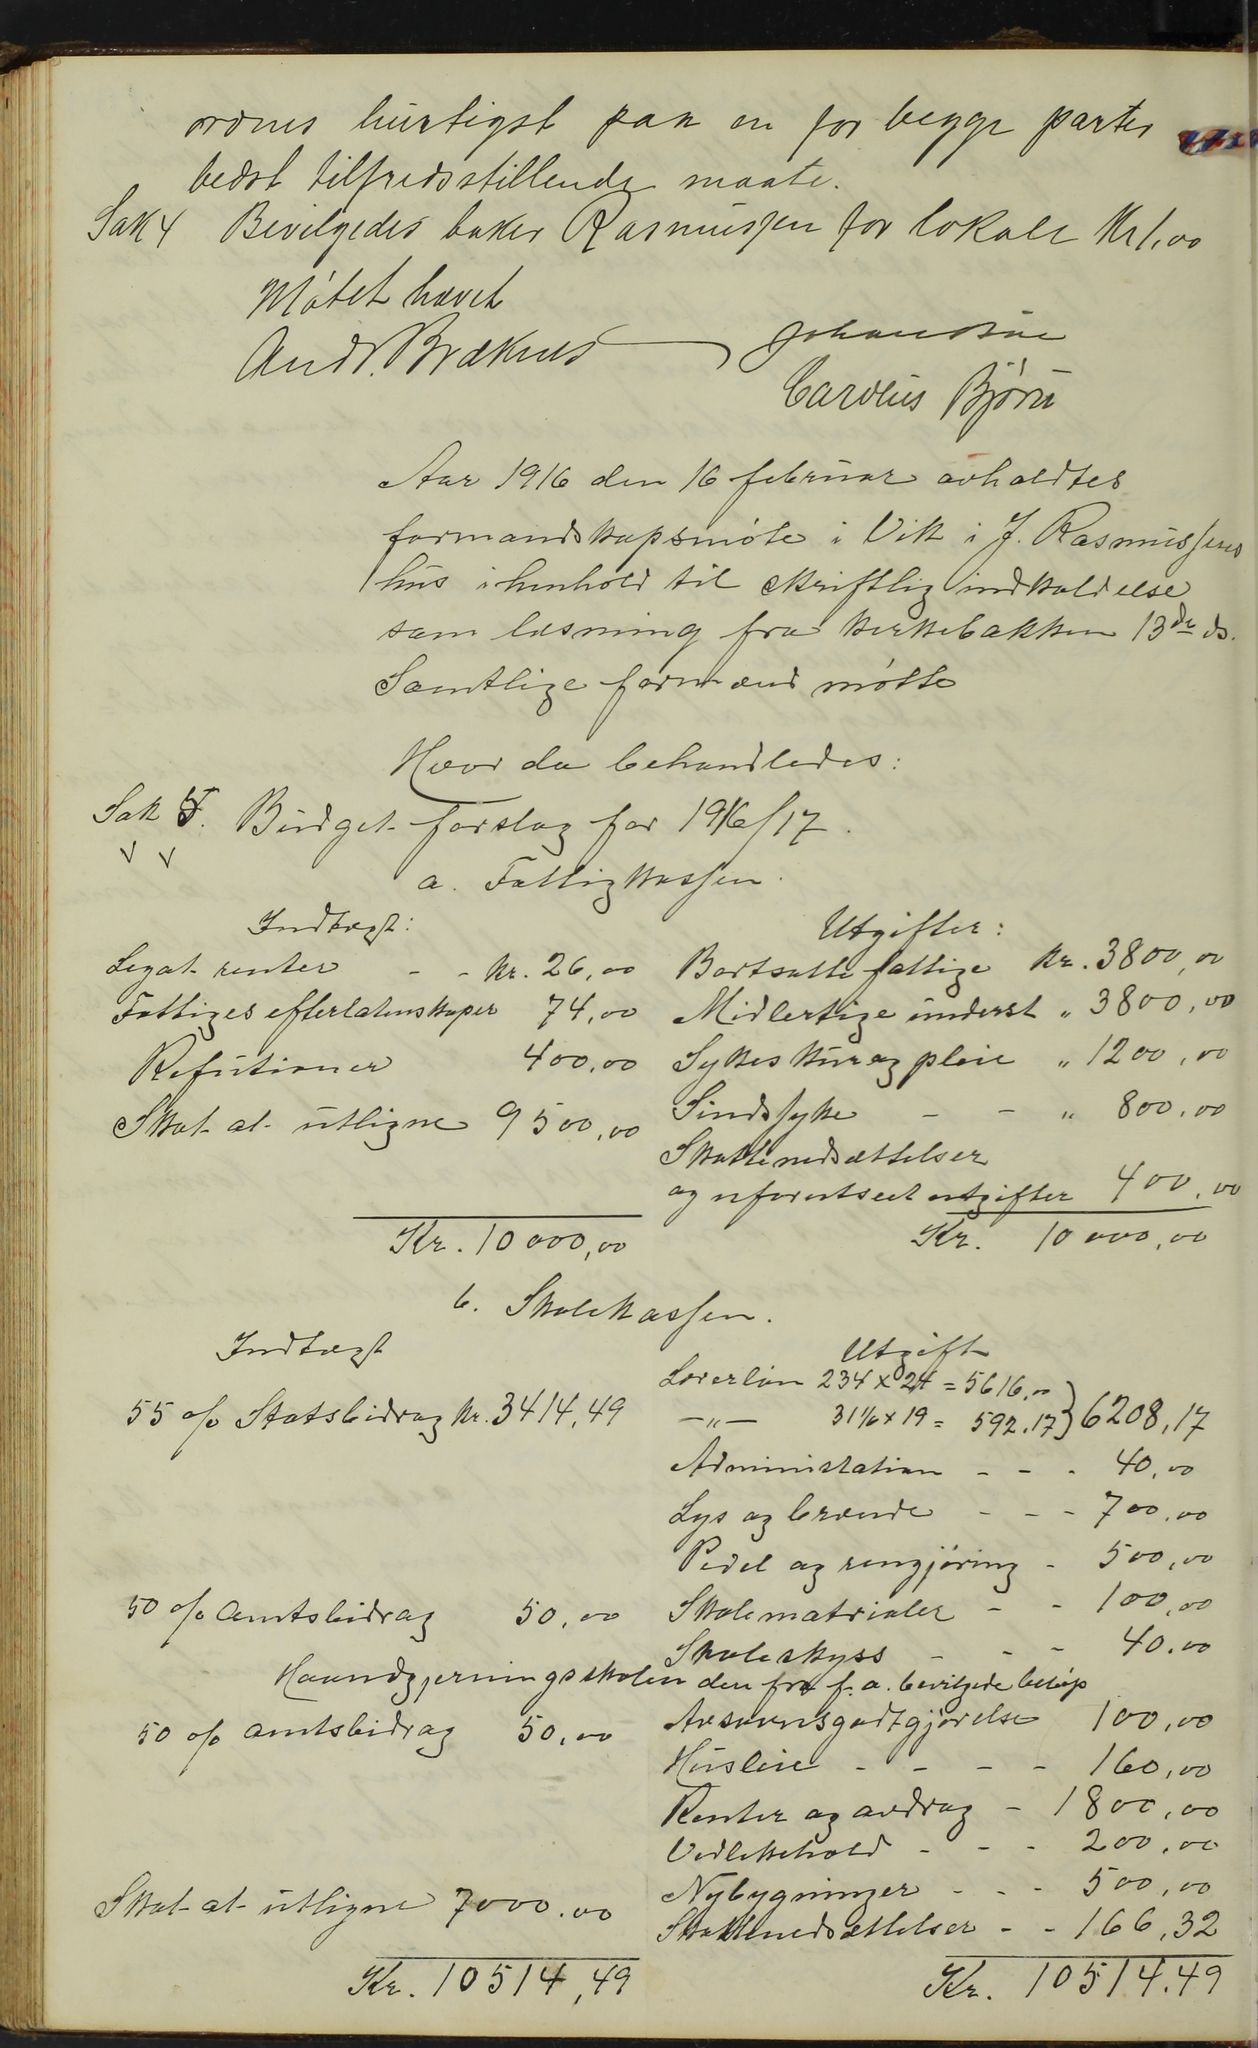 ordnes hurtigst paa en for begge parter
bedst tilfredsstillende maate.
Sak 4 Bevilgedes baker Rasmussen for lokale Kr 1,00
Møtet hævet
Andr. Brækhus
Carolius Bjørn
Aar 1916 den 16 februar avholdtes
formandskapsmøte i Vik i J. Rasmussens
hus i henhold til skriftlig indkaldelse
sam læsning fra kirkebakken 13de ds.
Samtlige formænd møtte
Hvor da behandledes:
Sak 5. Budget-forslag for 1916/17.
a. Fattigkassen.
Indtægt: Utgifter:
Legat-renter - - kr. 26,00 Bortsatte fattige kr. 3800,00
Fattiges efterlatenskaper 74,00 Midlertige underst " 3800,00
Refutioner 400,00 Sykes kur og pleie " 1200,00
Skat at utligne 9500,00 Sindssyke - - " 800,00
Skattenedsættelser
og uforutseet utgifter 400,00
Kr. 10000,00 Kr. 10000,00
b. Skolekassen.
Indtægt Utgift
Lærerløn 234 x 24 = 5616,00
55 o/o Statsbidrag kr. 3414,49 -"- 31 1/6 x 19 = 592.17 } 6208,17
Administration - - - 40,00
Lys og brænde - - - 700,00
Pedel og rengjøring - 500,00
50 o/o Amtsbidrag 50,00 Skolematrialer - - 100,00
Skoleskyss - - - 40.00
Haandgjerningsskolen den fra f. a. bevilgede beløp
50 o/o amtsbidrag 50,00 Avsavnsgodtgjørelse 100,00
Husleie - - - - 160,00
Renter og avdrag - 1800,00
Vedlikehold - - - 200,00
Nybygninger - - - 500,00
Skat at utligne 7000.00 Skattenedsættelser - - 166,32
Kr. 10514,49 Kr. 10514.49